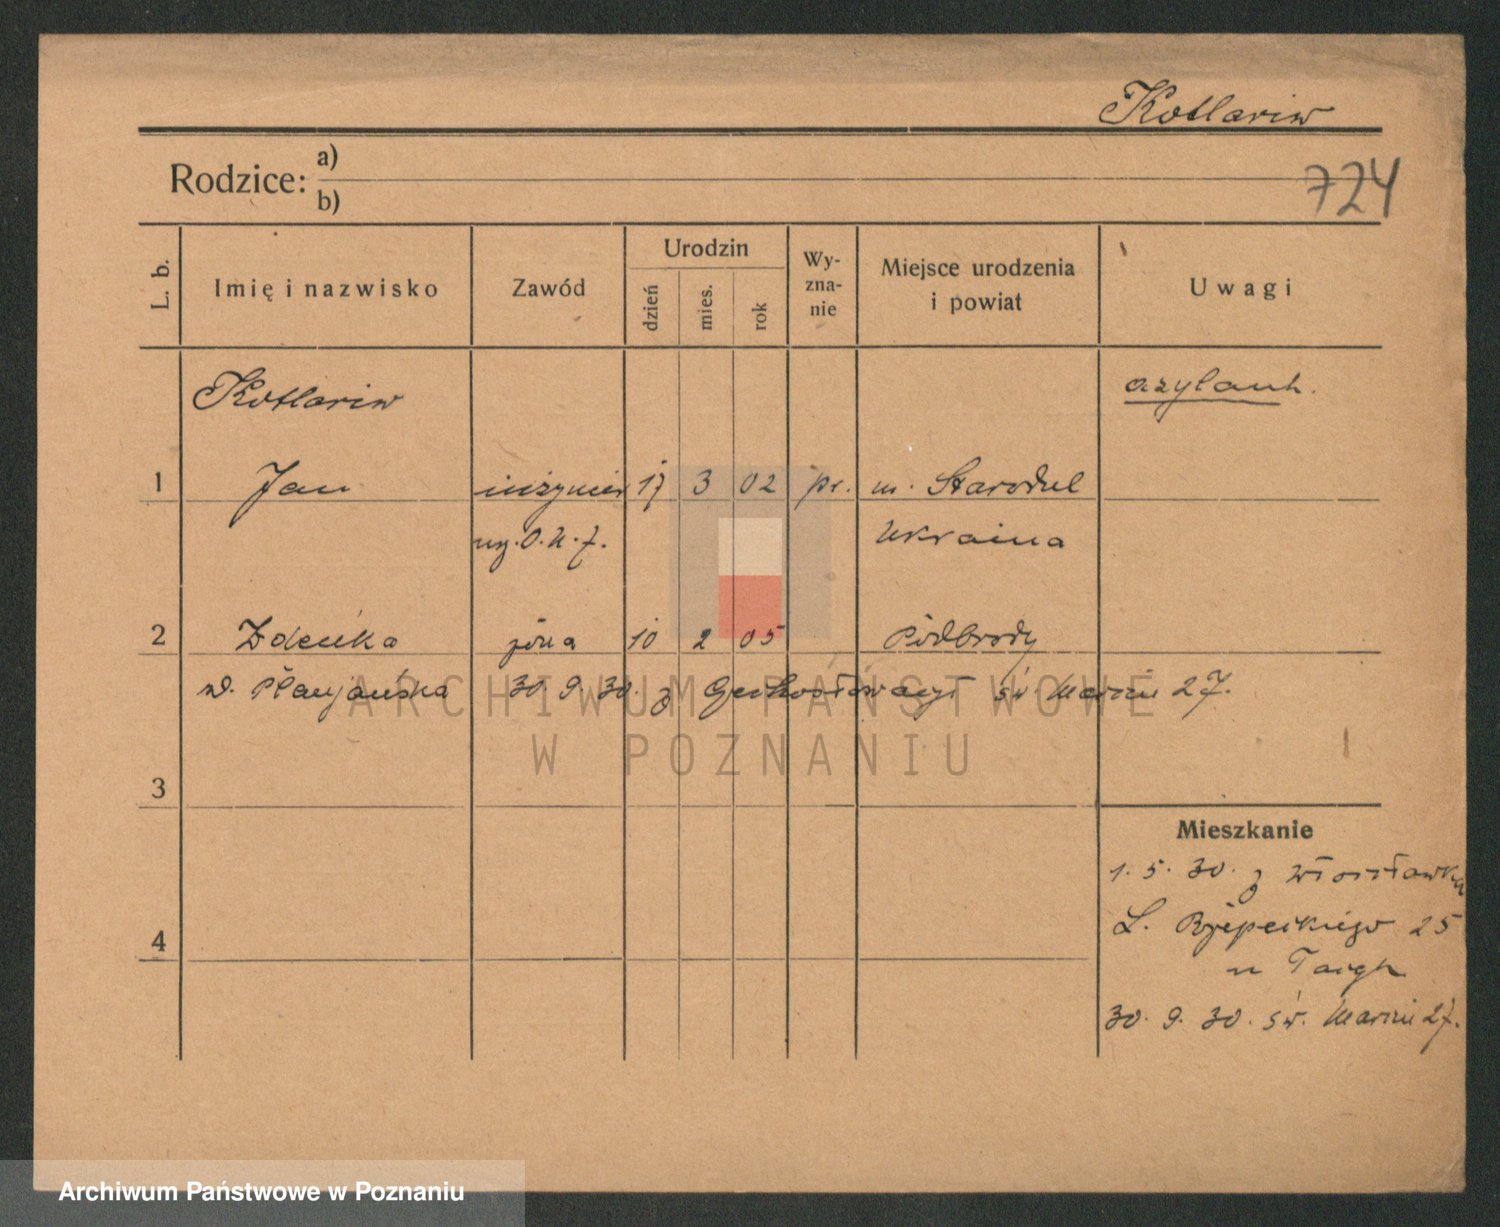 Kotlariw
Rodzice: a)
b)
724
L. b.
Imię i nazwisko
Zawód
Urodzin
dzień
mies.
rok
Wy-
zna-
nie
Miejsce urodzenia
i powiat
Uwagi
Kotlariw
azylant.
1 Jan inżynier 17 3 02 pr. m. Starodub
Ukraina
2 Zdenka żona 10 2 05 Podbrody
30. 9. 30. z św Marcin 27.
3
Mieszkanie
1. 5. 30. z Włocławka
Ł. Rzepeckiego 25
u
4
30. 9. 30. św. Marcin 27.
ARCHIWUM PAŃSTWOWE
W POZNANIU
Archiwum Państwowe w Poznaniu